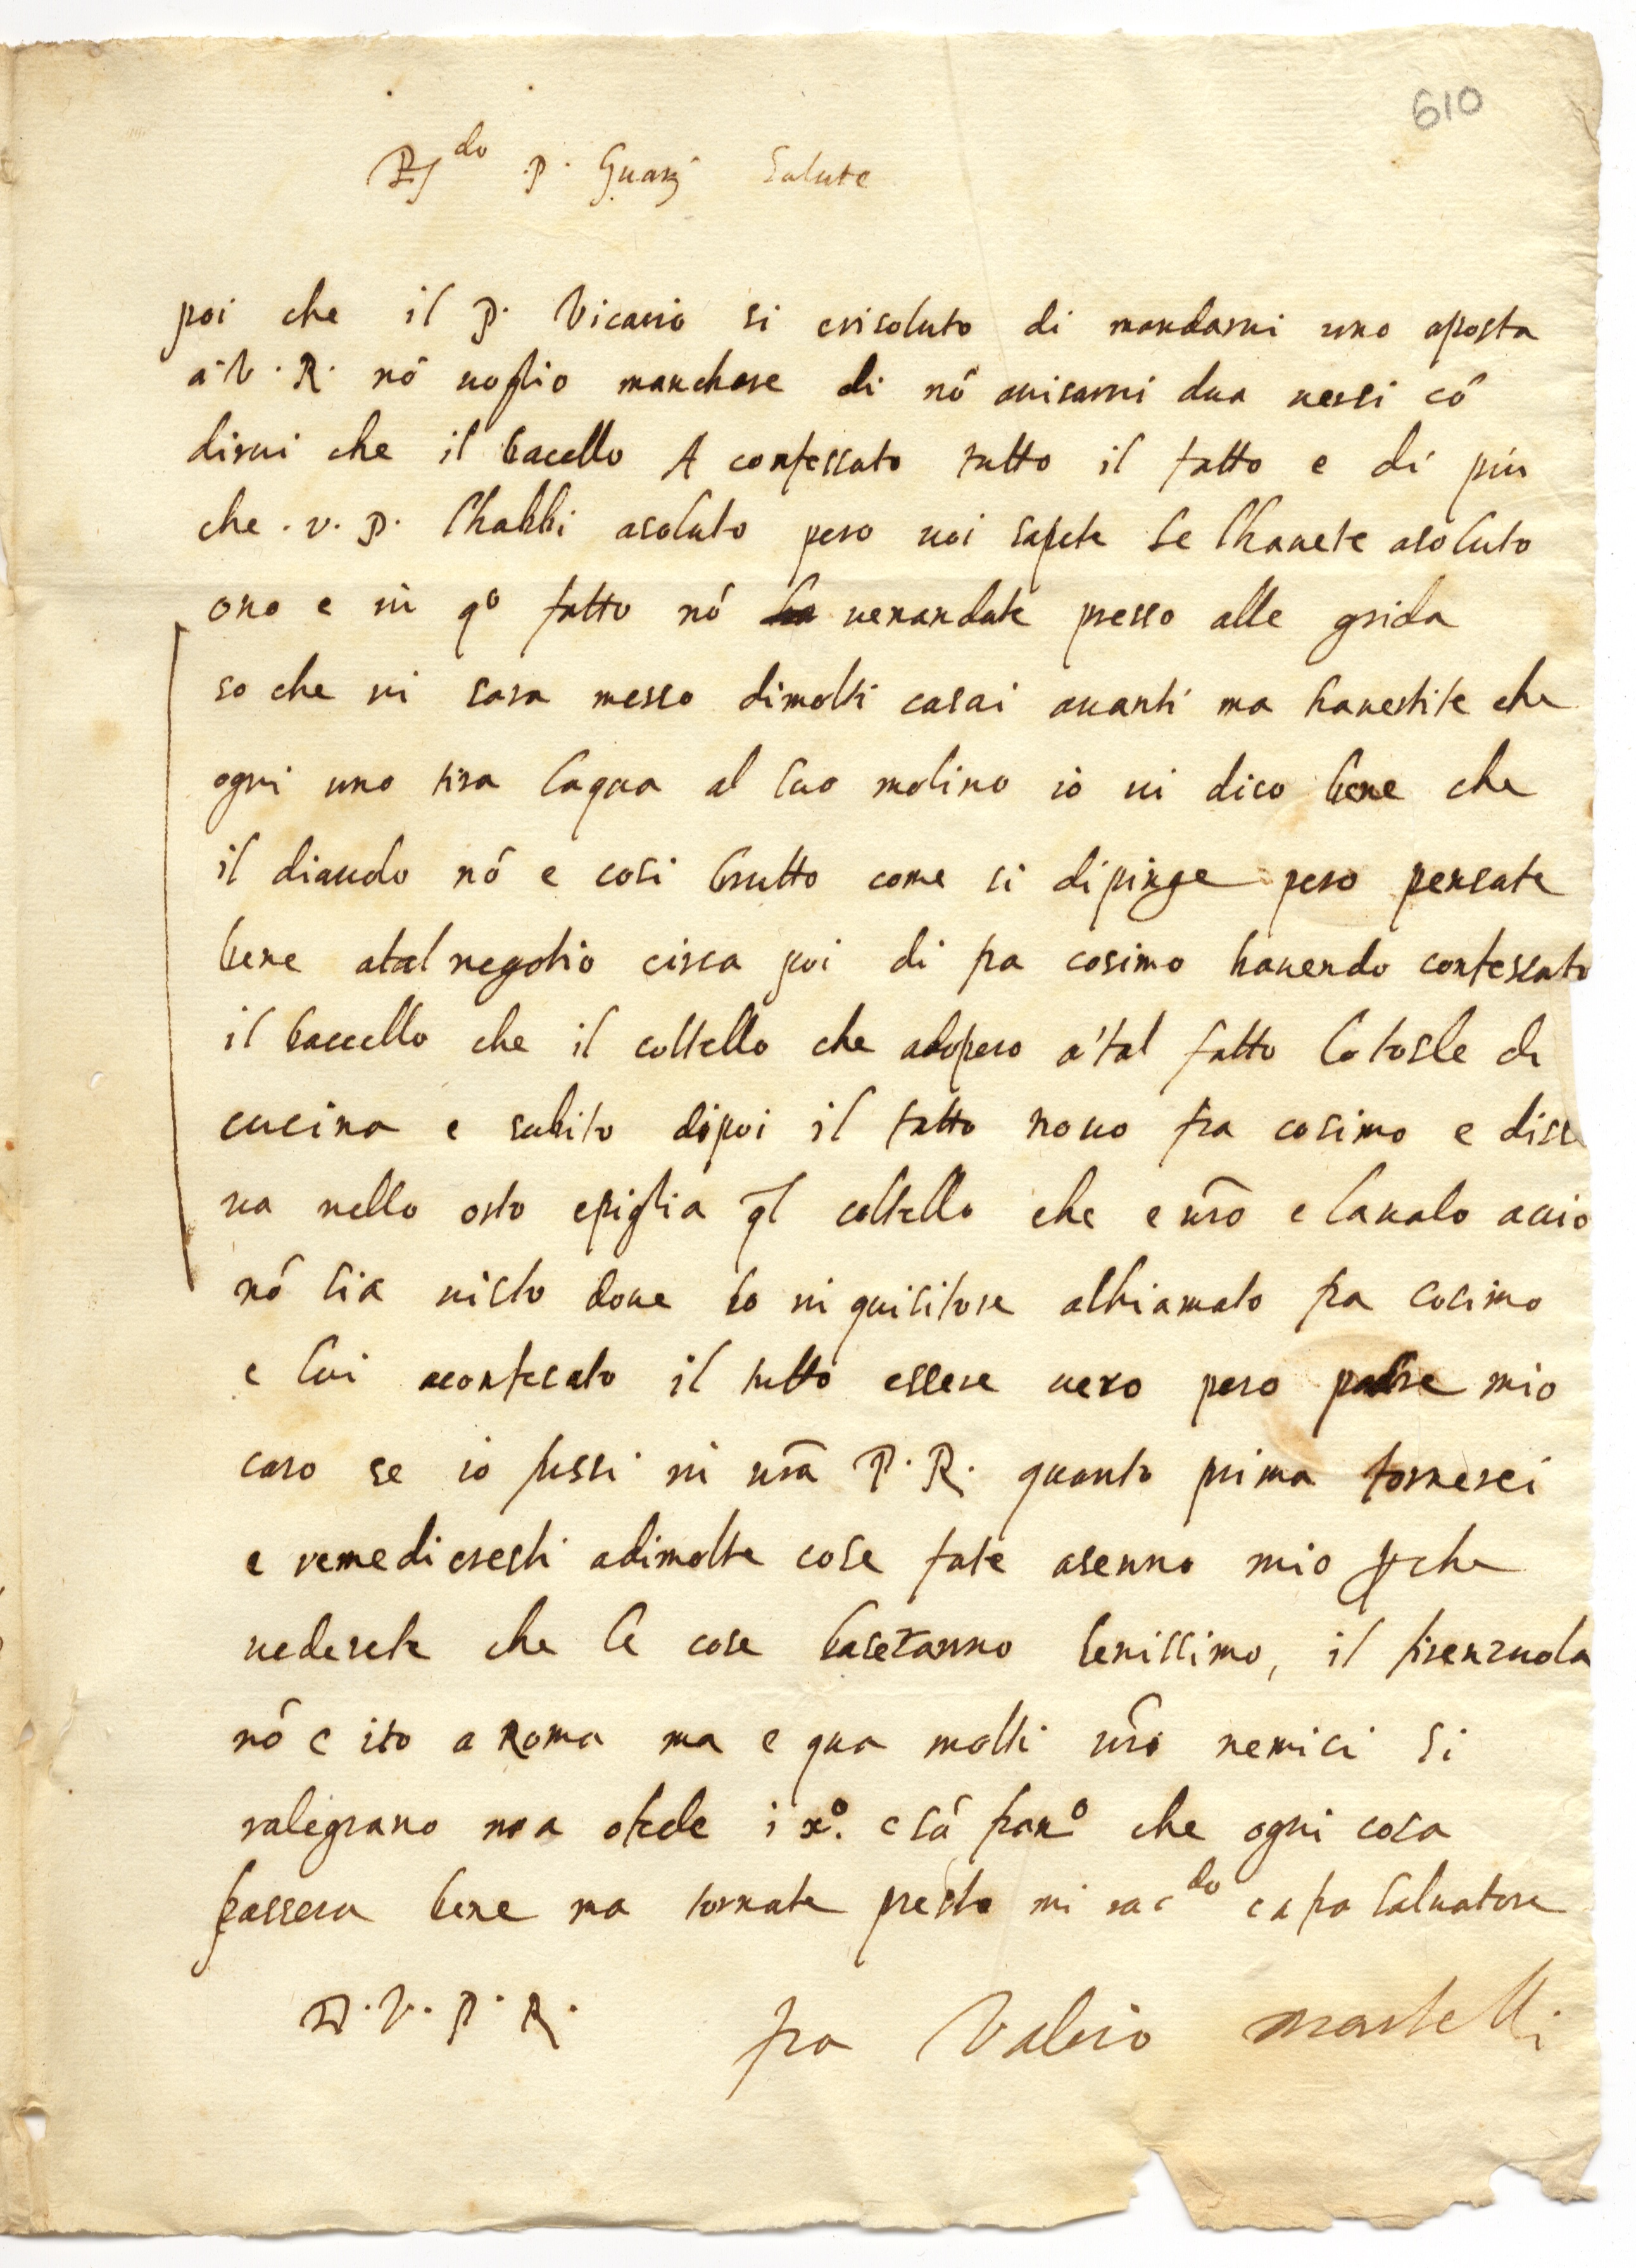 610
R.do P. Guar. Salute
poi che il P. Vicario si e risoluto di mandarvi uno aposta
a V. R. nō voglio manchare di nō avisarvi dua versi cō
dirvi che il bacello A confessato tutto il fatto e di piu
che . v. P. lhabbi asoluto pero voi sapete se lhavete asoluto
ono e in qo fatto nō venandate presso alle grida
so che vi sara messo dimolti casai avanti ma havertite che
ogni uno tira laqua al suo molino io vi dico bene che
il diavolo nō e cosi brutto come si dipinge pero pensate
bene atal negotio circa poi di fra cosimo havendo confessato
il baccello che il coltello che adopero a tal fatto lo tolse di
cucina e subito dipoi il fatto trovo fra cosimo e disse
va nello orto e piglia ql coltello che e nrō e lavalo acio
nō sia visto dove lo inquisitore a chiamato fra cosimo
e lui a confesato il tutto essere vero pero padre mio
caro se io fussi in vrā P. R. quanto prima tornerei
e remedieresti adimolte cose fate asenno mio p che
vederete che le cose paseranno benissimo, il firenzuola
nō e ito a Roma ma e qua molti vrī nemici si
ralegrano ma o fede i xo. e sā frano che ogni cosa
passera bene ma tornate presto mi rac do e a fra salvatore
D. V. P. R.
fra Valerio martelli